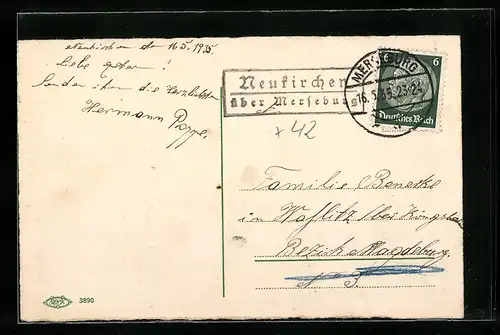 Neukirchen den 16.5.1935
Liebe
Senden ihnen die herzlichsten
Hermann Poppe.
Neukirchen
über Merseburg
MERSEBURG
16.5.35.23-24
6
Deutsches Reich
x 42
Familie Beneske
in Waßlitz bei Königs
Bezirk Magdeburg.
3890